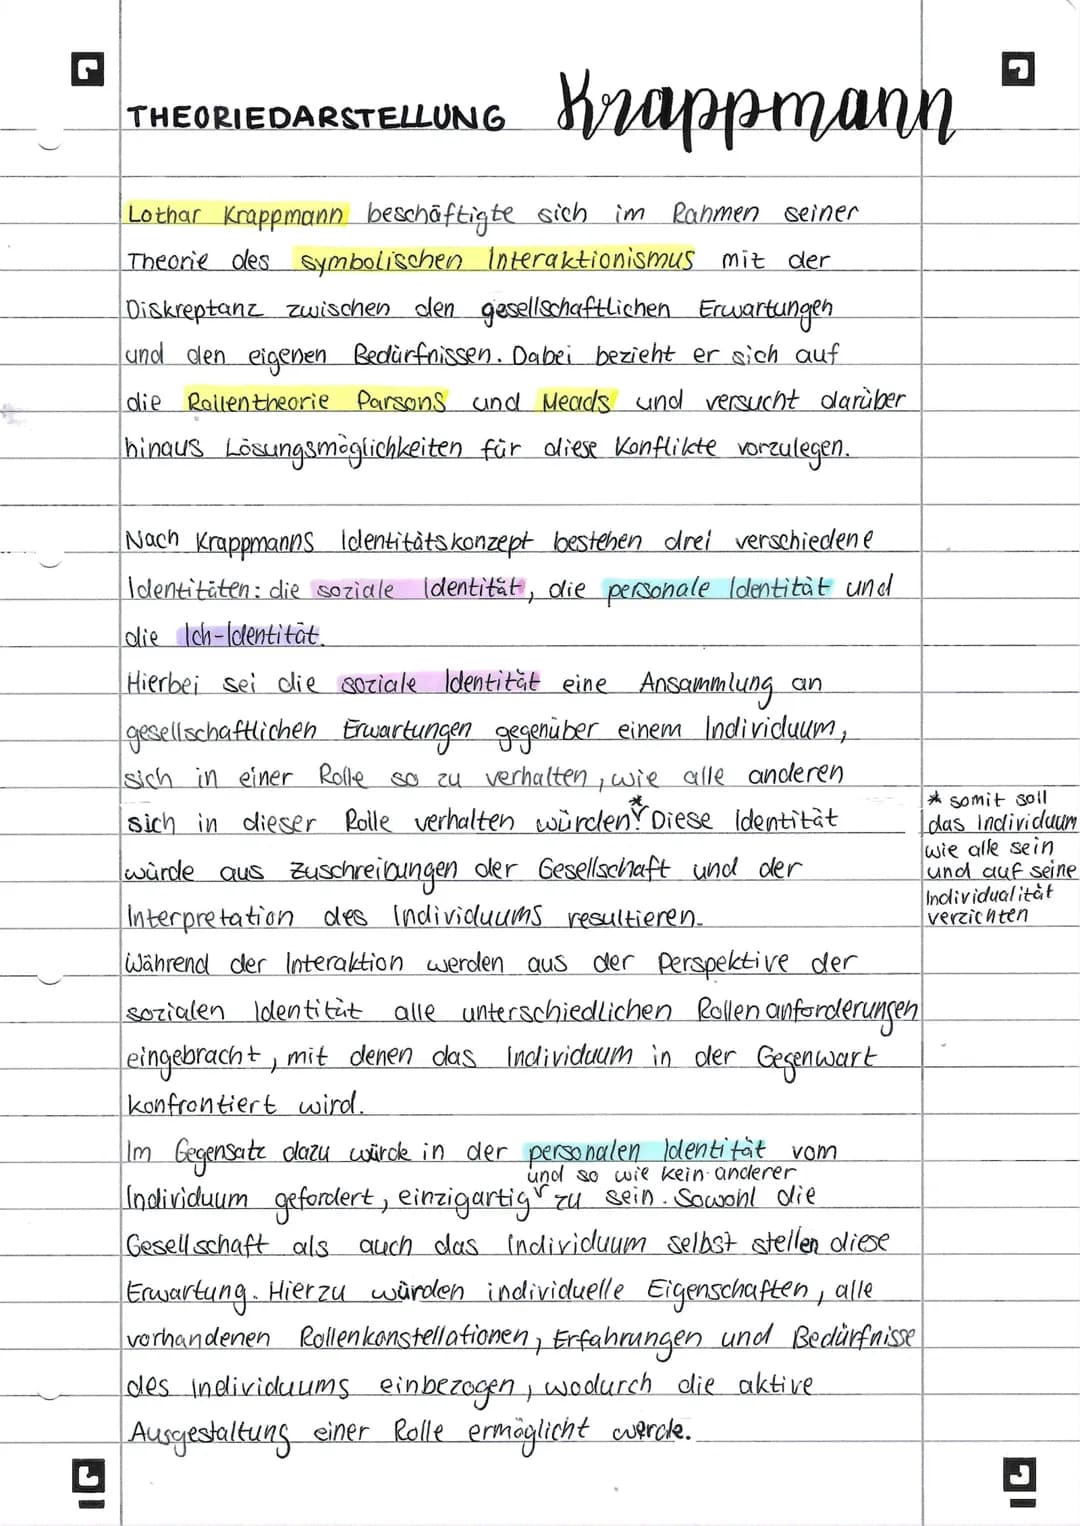 THEORIEDARSTELLUNG Krappmann
Lothar Krappmann beschäftigte sich im Rahmen seiner
Theorie des symbolischen Interaktionismus mit der
Diskreptanz zwischen den gesellschaftlichen Erwartungen
und den eigenen Bedürfnissen. Dabei bezieht er sich auf
die Rollentheorie Parsons und Meads und versucht darüber
hinaus Lösungsmöglichkeiten für diese Konflikte vorzulegen.
Nach Krappmanns Identitätskonzept bestehen drei verschiedene
Identitäten: die soziale Identität, die personale Identität und
die Ich-Identität.
Hierbei sei die soziale Identität eine Ansammlung an
gesellschaftlichen Erwartungen gegenüber einem Individuum,
sich in einer Rolle so zu verhalten, wie alle anderen
sich in dieser Rolle verhalten würden.* Diese Identität
würde aus Zuschreibungen der Gesellschaft und der
Interpretation des Individuums resultieren.
* somit soll
das Individuum
wie alle sein
und auf seine
Individualität
verzichten
Während der Interaktion werden aus der Perspektive der
sozialen Identität alle unterschiedlichen Rollenanforderungen
eingebracht, mit denen das Individuum in der Gegenwart
konfrontiert wird.
Im Gegensatz dazu würde in der personalen Identität vom
und so wie kein anderer
Individuum gefordert, einzigartig zu sein. Sowohl die
Gesellschaft als auch das Individuum selbst stellen diese
Erwartung. Hierzu würden individuelle Eigenschaften, alle
vorhandenen Rollenkonstellationen, Erfahrungen und Bedürfnisse
des Individuums einbezogen, wodurch die aktive
Ausgestaltung einer Rolle ermöglicht werde.